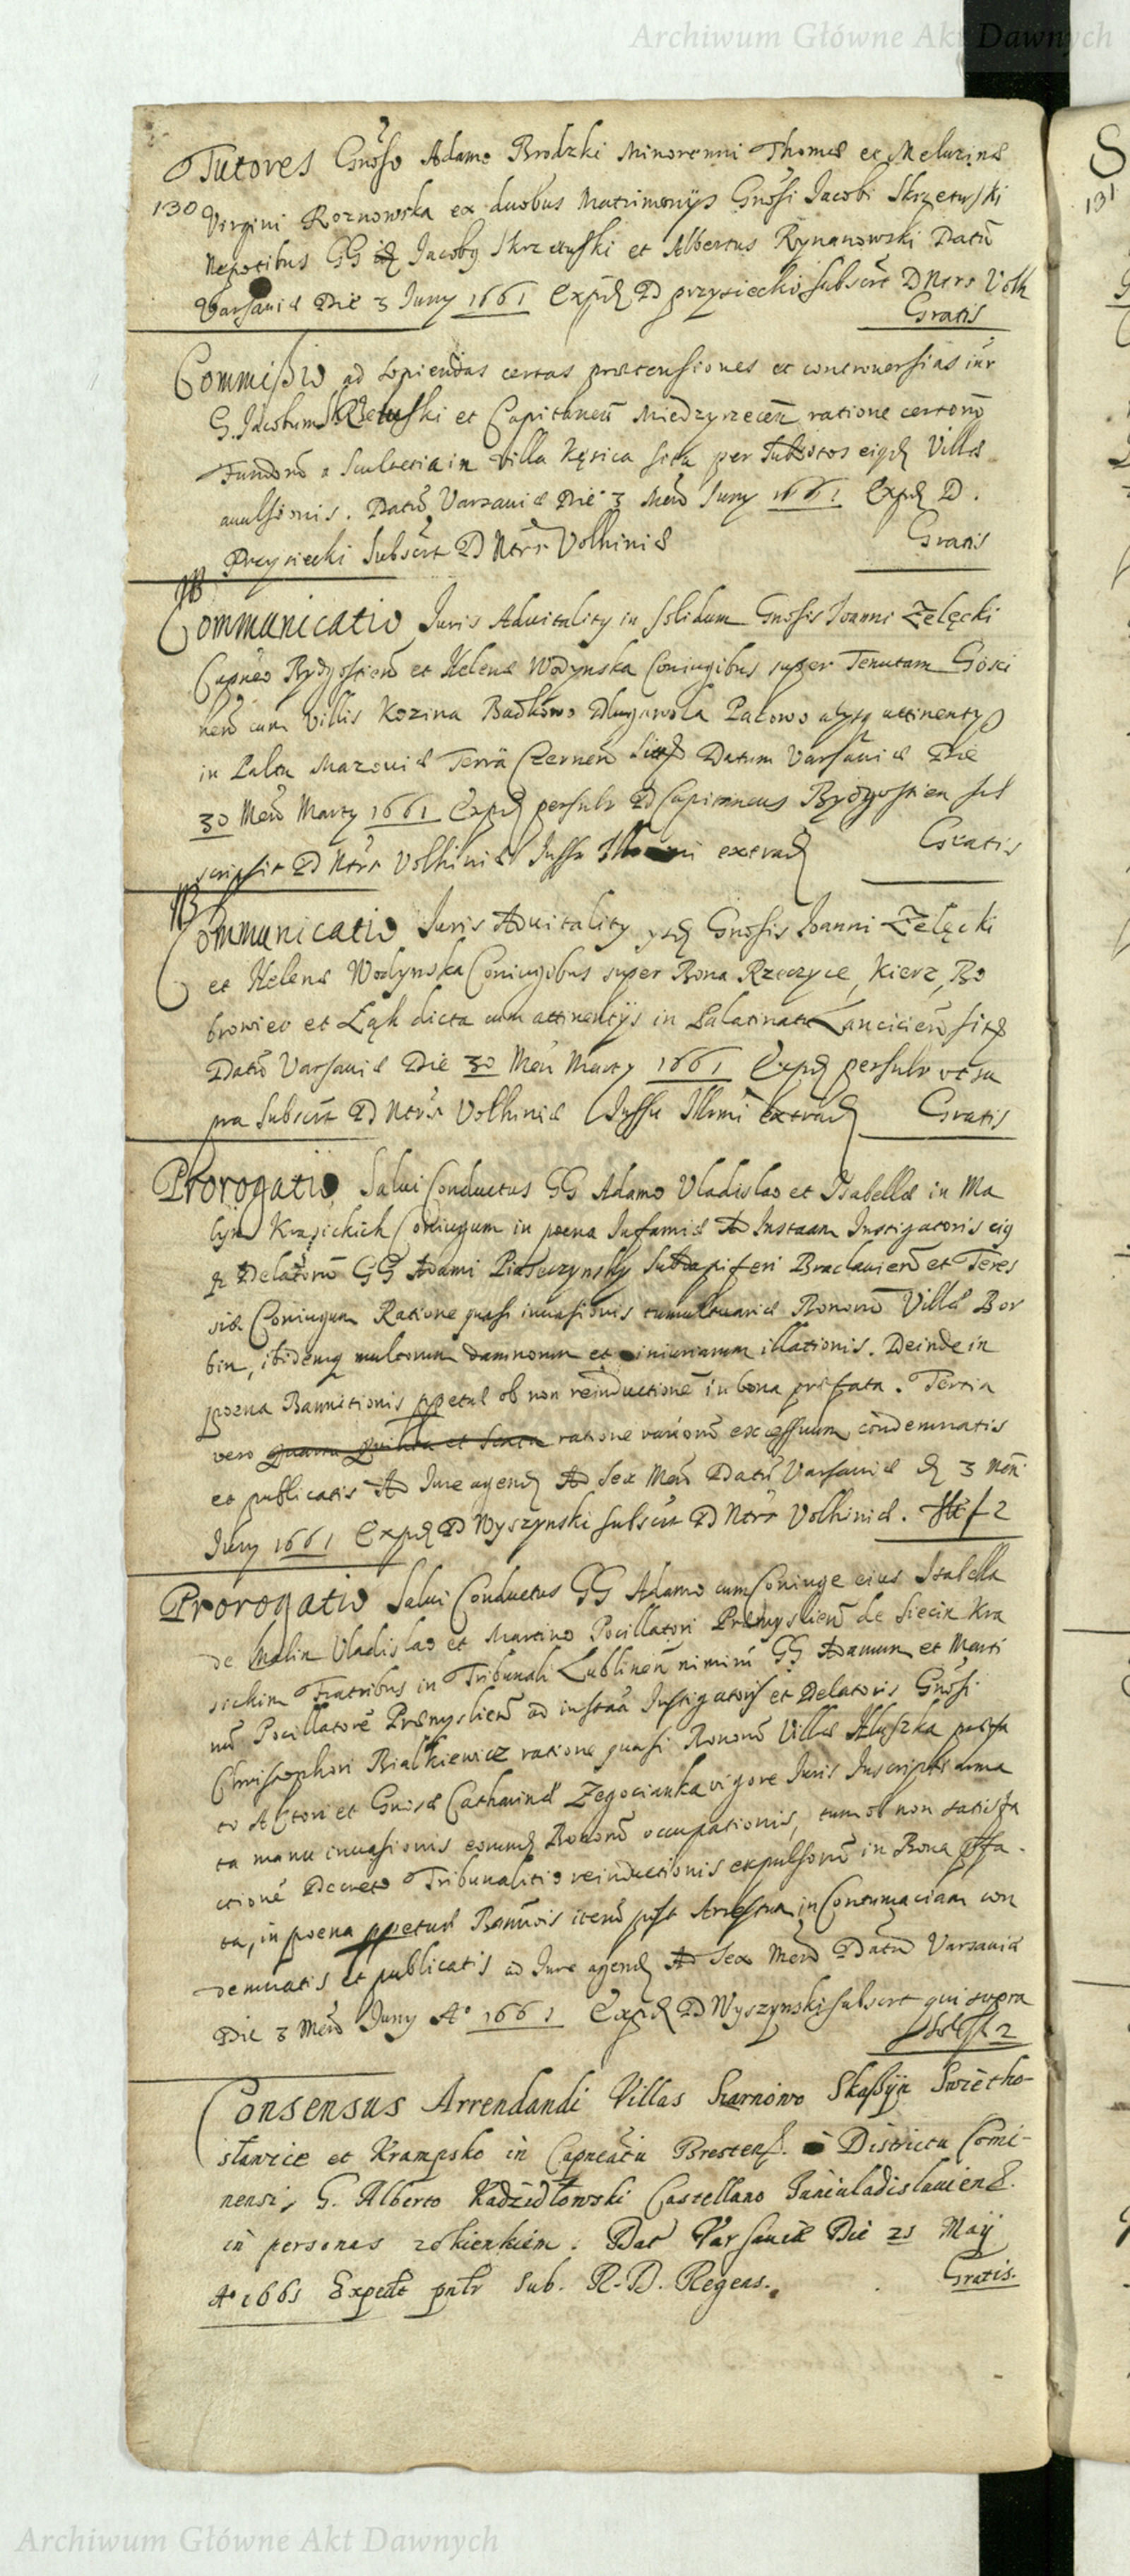 Archiwum Główne Akt Dawnych
Tutores Gnoso Adamo Brodzki Minorenni Thomæ et Meluzinæ
130 Virgini Roznowska ex duobus Matrimonijs Gnosi Jacobi Skrzetuski
Nepotibus GG Jacobg Skrzetuski et Albertus Rynanowski Datū
Varsaviæ Die 3 Juny 1661 Exped D przysiecki subscrt D Ntrs Volh
Gratis
Commissio ad sopiendas certas prætensiones et controversias intr
G. Jacobum Skrzetuski et Capitaneū Miedzyrzecen ratione certorū
Fundorū a Scultetia in Villa Kęsica sita per Subditos eigd Villæ
avulsionis. Datū Varzaviæ Die 3 Men Juny 1661 Exped D.
Przysiecki Subscrt D Ntrs Volhiniæ Gratis
Communicatio Juris Advitality in solidum Gnosis Joanni Zelęcki
Capneo Bydgostien et Helenæ Wodynska Coniugibus super Tenutam Gosci
nen cum Villis Kozina Badkowo Dlugawola Pacowo alysq attinentys
in Paltu Mazoviæ Terrā Czernen Sitis Datum Varsaviæ Die
30 Men Marty 1661 Exped persulr D Capitaneus Bydgostien sub
scripsit D Ntrs Volhiniæ Jussu extrad Gratis
Communicatio Juris Advitality ysd Gnosis Joanni Zelęcki
et Helenæ Wodynska Coniugibus super Bona Rzeczyce, Kierz, Bo
browiec et Łąk dicta cum attinentijs in Palatinatu Lancicien sitis
Datū Varsaviæ Die 30 Men Marty 1661 Exped persulr ut su
pra Subscrt D Ntrs Volhiniæ Jussu Illmi extrad Gratis
Prorogatio Salvi Conductus GG Adamo Vladislao et Isabellæ in Ma
lyn Krasickich Coniugum in poena Infamiæ Ad Instaam Instigatoris eig
q Delatorū GG Adami Piaseczynsky Subdapiferi Braclavien et Teres
siæ Coniugum Ratione quasi invasionis tumultuariæ Bonorū Villæ Bor
bin, ibidemq multorum damnorum et iniuriarum illationis. Deinde in
poena Bannitionis ppetuæ ob non reinductionē in bona præfata. Tertia
vero quarta quinta et sexta ratione variorū excessuum condemnatis
et publicatis Ad Jure agend Ad Sex Men Datū Varsaviæ d 3 Men
Juny 1661 Exped D Wyszynski subscrt D Ntrs Volhiniæ. f 2
Prorogatio Salvi Conductus GG Adamo cum Coniuge eius Isabella
de Malin Vladislao et Martino Pocillatori Præmyslien de Siecin Kra
sickim Fratribus in Tribunali Lublinen nimirū GG Adamum et Marti
nū Pocillatorē Præmyslien ad instaā Instigatoris et Delatoris Gnosi
Christophori Bialkiewicz ratione quasi Bonorū Villæ Hluszka præfa
to Actori et Gnosæ Catharinæ Zegocianka vigore Juris Inscriptis arma
ta manu invasionis eorumd Bonorū occupationis, tum ob non satisfa
ctionē Decreto Tribunalitio reinductionis expulsorū in Bona pfa.
ta, in poena ppetuæ Bannois item post Arrestum in Contumaciam con
demnatis et publicatis ad Jure agend Ad Sex Men Datū Varsaviæ
Die 3 Men Juny Ao 1661 Exped D Wyszynski subscrt qui supra
2
Consensus Arrendandi Villas Szarnowo Skaszyn Swiétho-
sławice et Krampsko in Capneatu Bresten. Districtu Comi-
nensi, G. Alberto Kadzidłowski Castellano Juniuladislauiens.
in personas zokienkiem. Dat Varsaviæ Die 21 Maij
Ao 1661 Expedt pntr Sub. R. D. Regens. Gratis.
131
Archiwum Główne Akt Dawnych